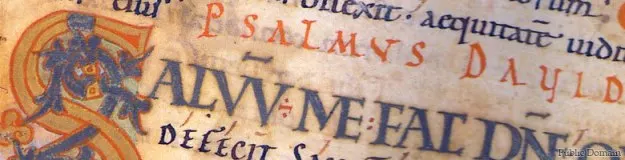 dilexit. aequitatē uidit
PSALMVS DAVID
SALVV̄: ME: FAC DN̄E
DEFECIT
Public Domain